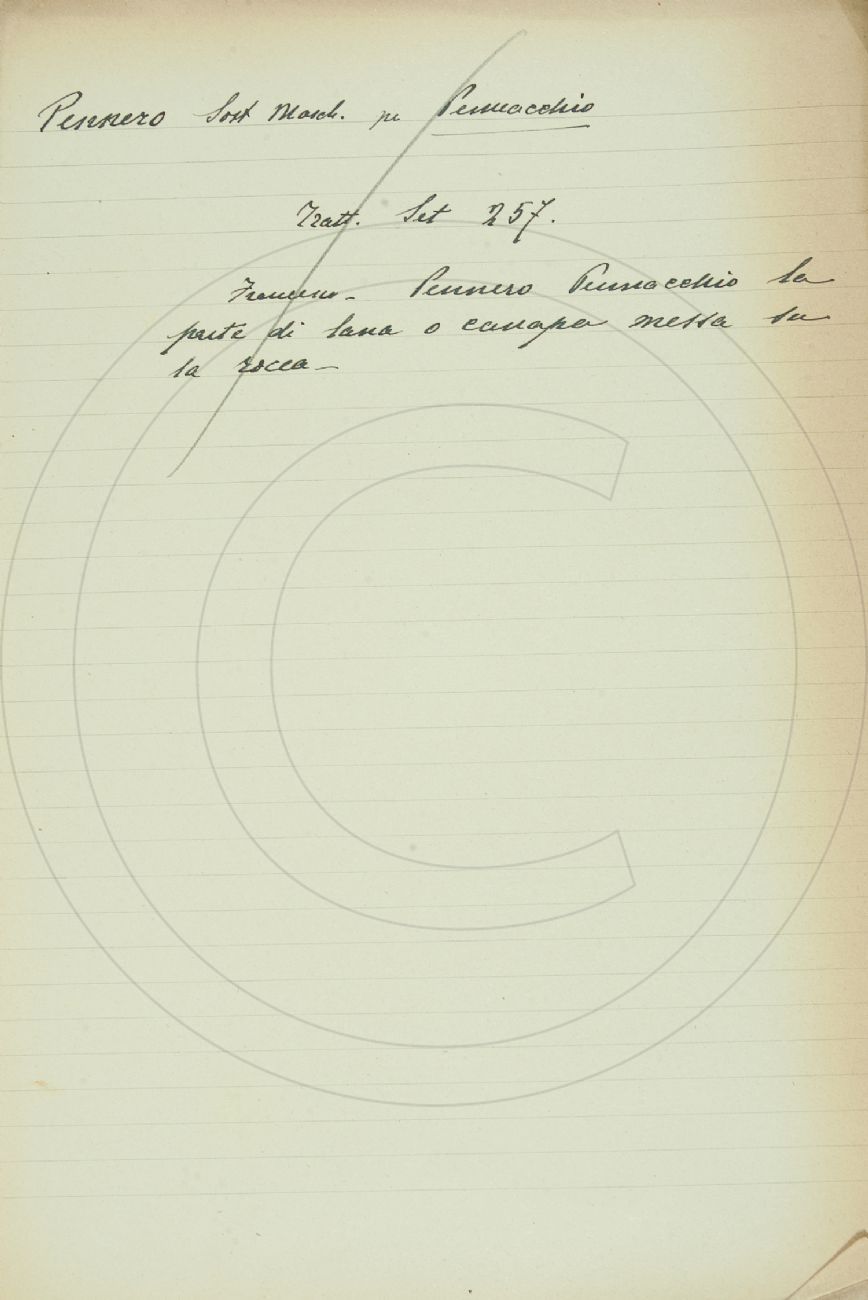 Pennero Sost Masch. per Pennacchio
Tratt. Set 257.
Pennero Pennacchio la
parte di lana o canapa messa su
la rocca